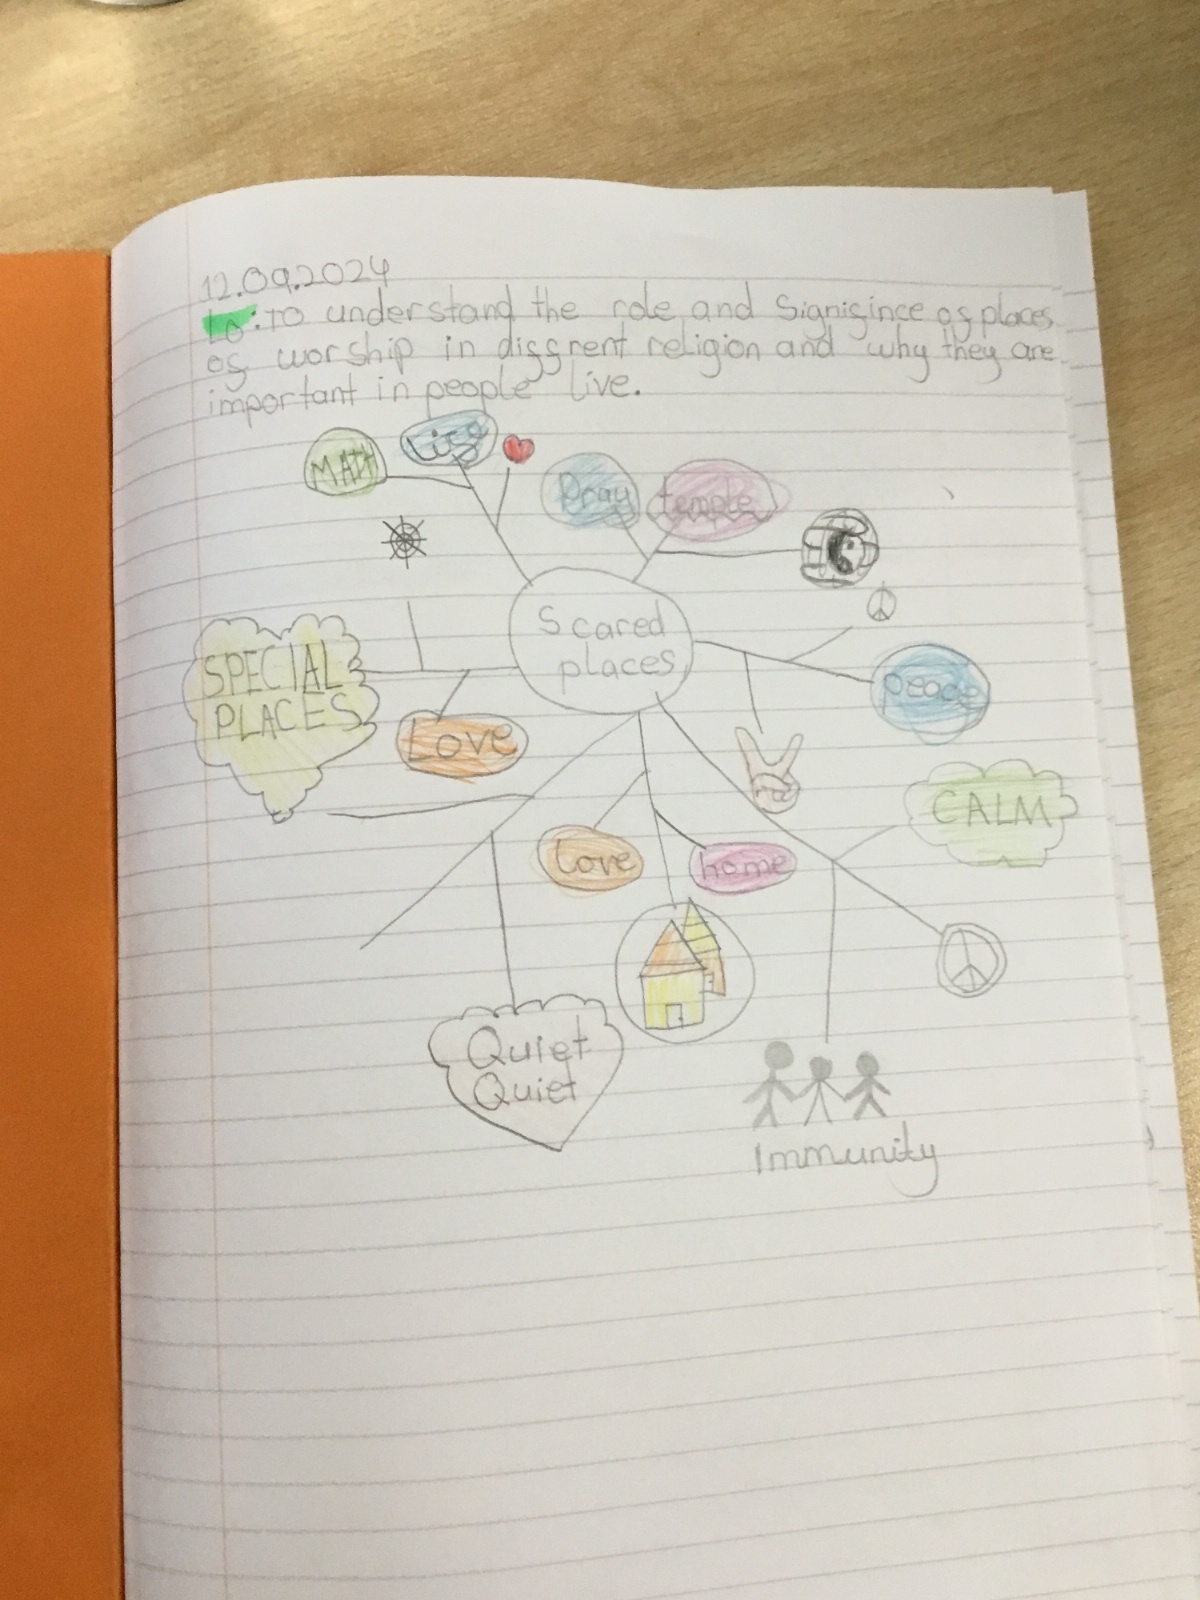 12.09.2024
Lo: To understand the role and Signigince og places
og worship in diggrent religion and why they are
important in people live.
MATH
Life
Pray
temple
Scared
places
peace
SPECIAL
PLACES
Love
CALM
Love
home
Quiet
Quiet
Immunity